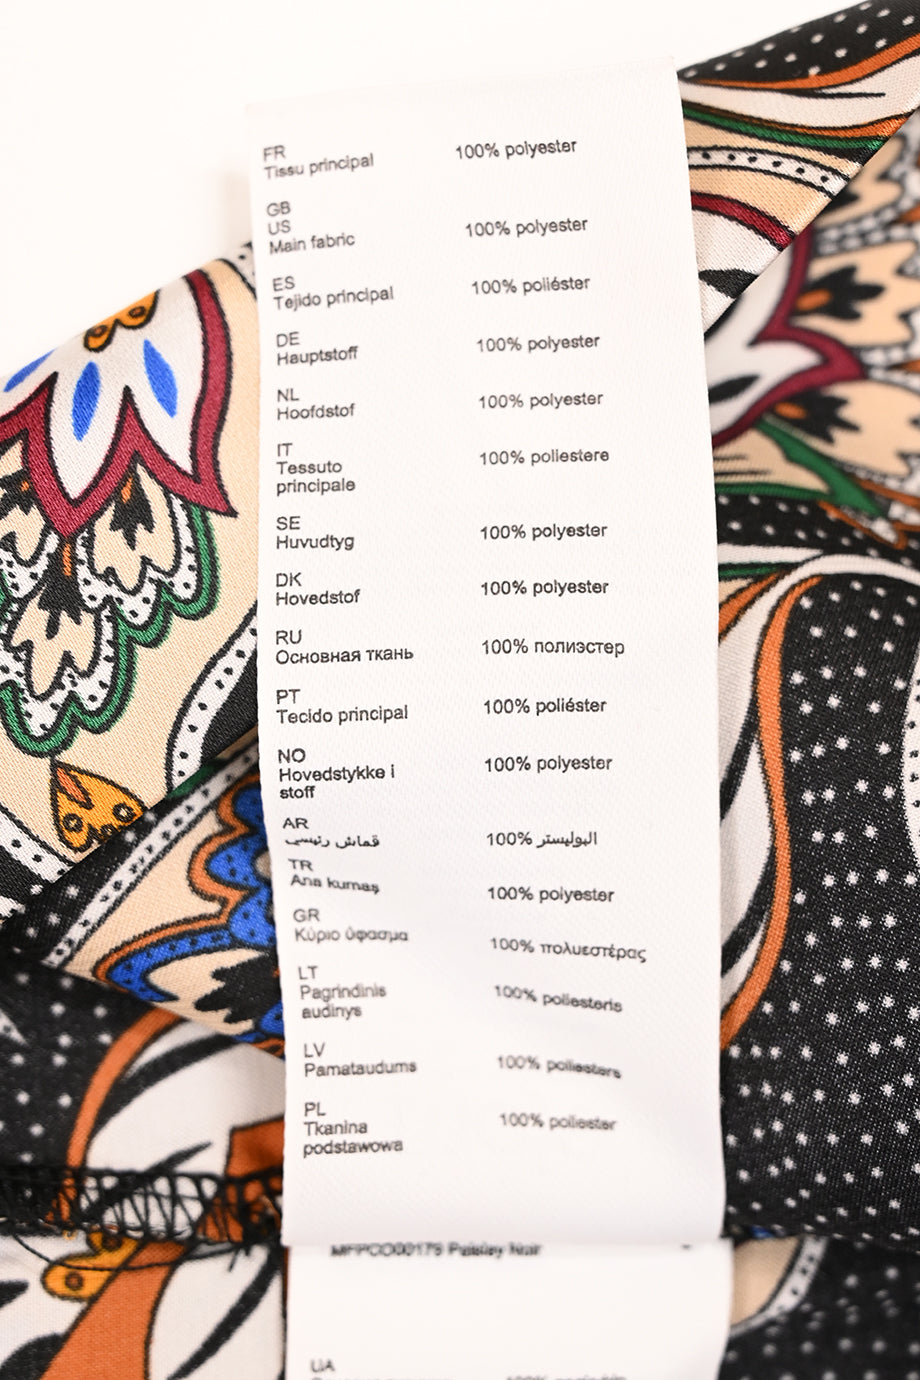 FR
Tissu principal 100% polyester
GB
US
Main fabric 100% polyester
ES
Tejido principal 100% poliéster
DE
Hauptstoff 100% polyester
NL
Hoofdstof 100% polyester
IT
Tessuto 100% poliestere
principale
SE
Huvudtyg 100% polyester
DK
Hovedstof 100% polyester
RU
Основная ткань 100% полиэстер
PT
Tecido principal 100% poliéster
NO
Hovedstykke i 100% polyester
stoff
AR
قماش رئيسي 100% البوليستر
TR
Ana kumaş 100% polyester
GR
Κύριο ύφασμα 100% πολυεστέρας
LT
Pagrindinis 100% poliesteris
audinys
LV
Pamataudums 100% poliesters
PL
Tkanina 100% poliester
podstawowa
Paisley Noir
UA